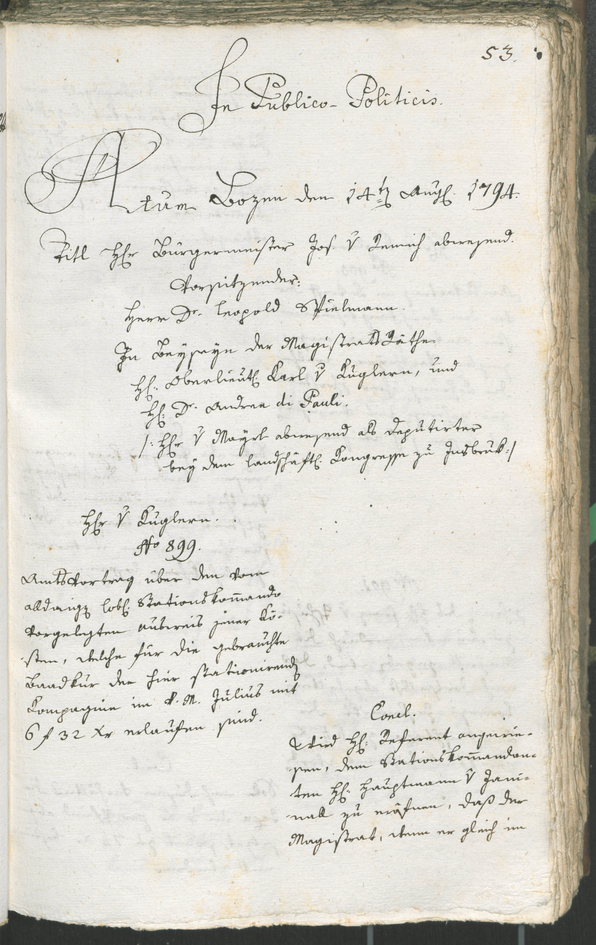 53.
In Publico-Politicis.
Actum Bozen den 14t Aug. 1794.
Titl Hr Bürgermeister Jos. v Remich abwesend.
Vorsitzender:
Herr Dr. Leopold Spielmann.
In Beyseyn der Magistrats Räthe
H: Oberlieut: Karl v Kuglern, und
H: Dr. Andrea di Pauli.
/: Hr v Mayrl abwesend als Deputirter
bey dem landschäftl: Kongresse zu Insbruk :/
Hr v Kuglern.
No 899.
Amts Vortrag über den vom
alldaig löbl: Stationskommando
vorgelegten ausweis jener Kö-
sten, welche für die gebrauchte
Baadkur der hier stationirend
Kompagnie im v. M. Julius mit
6 f 32 Xr erlaufen sind.
Concl.
Wird H: Referent angewie-
sen, dem Stationskommandan-
ten H: Hauptmann v
zu eröfnen, daß der
Magistrat, wenn er gleich im